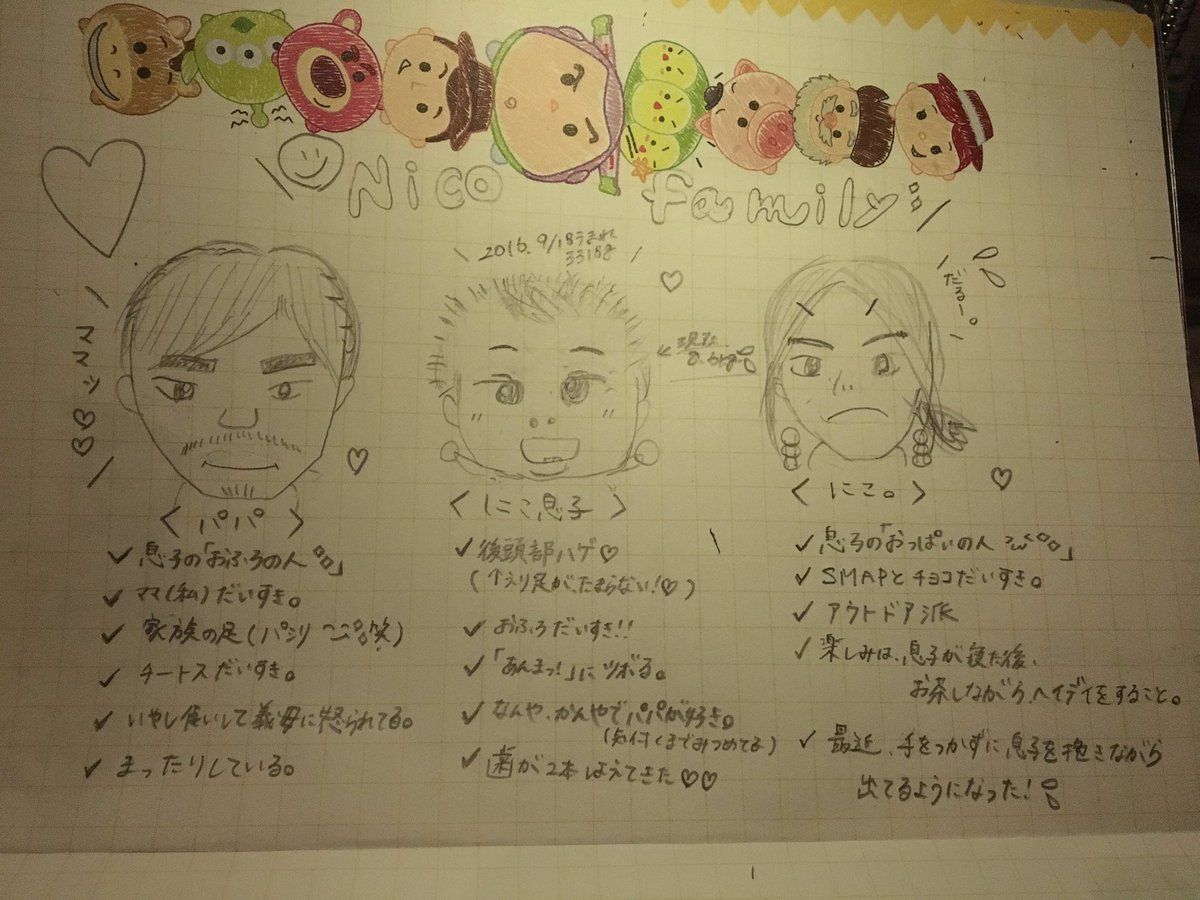 Nico family
2016. 9/18うまれ
3315g
だるー。
<パパ>
✓ 息子の「おふろの人」
✓ ママ(私)だいすき。
✓ 家族の足(パシリ 笑)
✓ チートスだいすき。
✓ いやし食いして義母に怒られてる。
✓ まったりしている。
<にこ息子>
✓ 後頭部ハゲ♡
(↑えり足がたまらない!♡)
✓ おふろだいすき!!
✓ 「あんまっ!」にツボる。
✓ なんや、かんやでパパが好き。
(気付くまでみつめてる)
✓ 歯が2本はえてきた♡♡
<にこ。>
✓ 息子の「おっぱいの人」
✓ SMAPとチョコだいすき。
✓ アウトドア派
✓ 楽しみは、息子が寝た後、
お茶しながら、ヘイデイをすること。
✓ 最近、手をつかずに息子を抱きながら
出てるようになった!